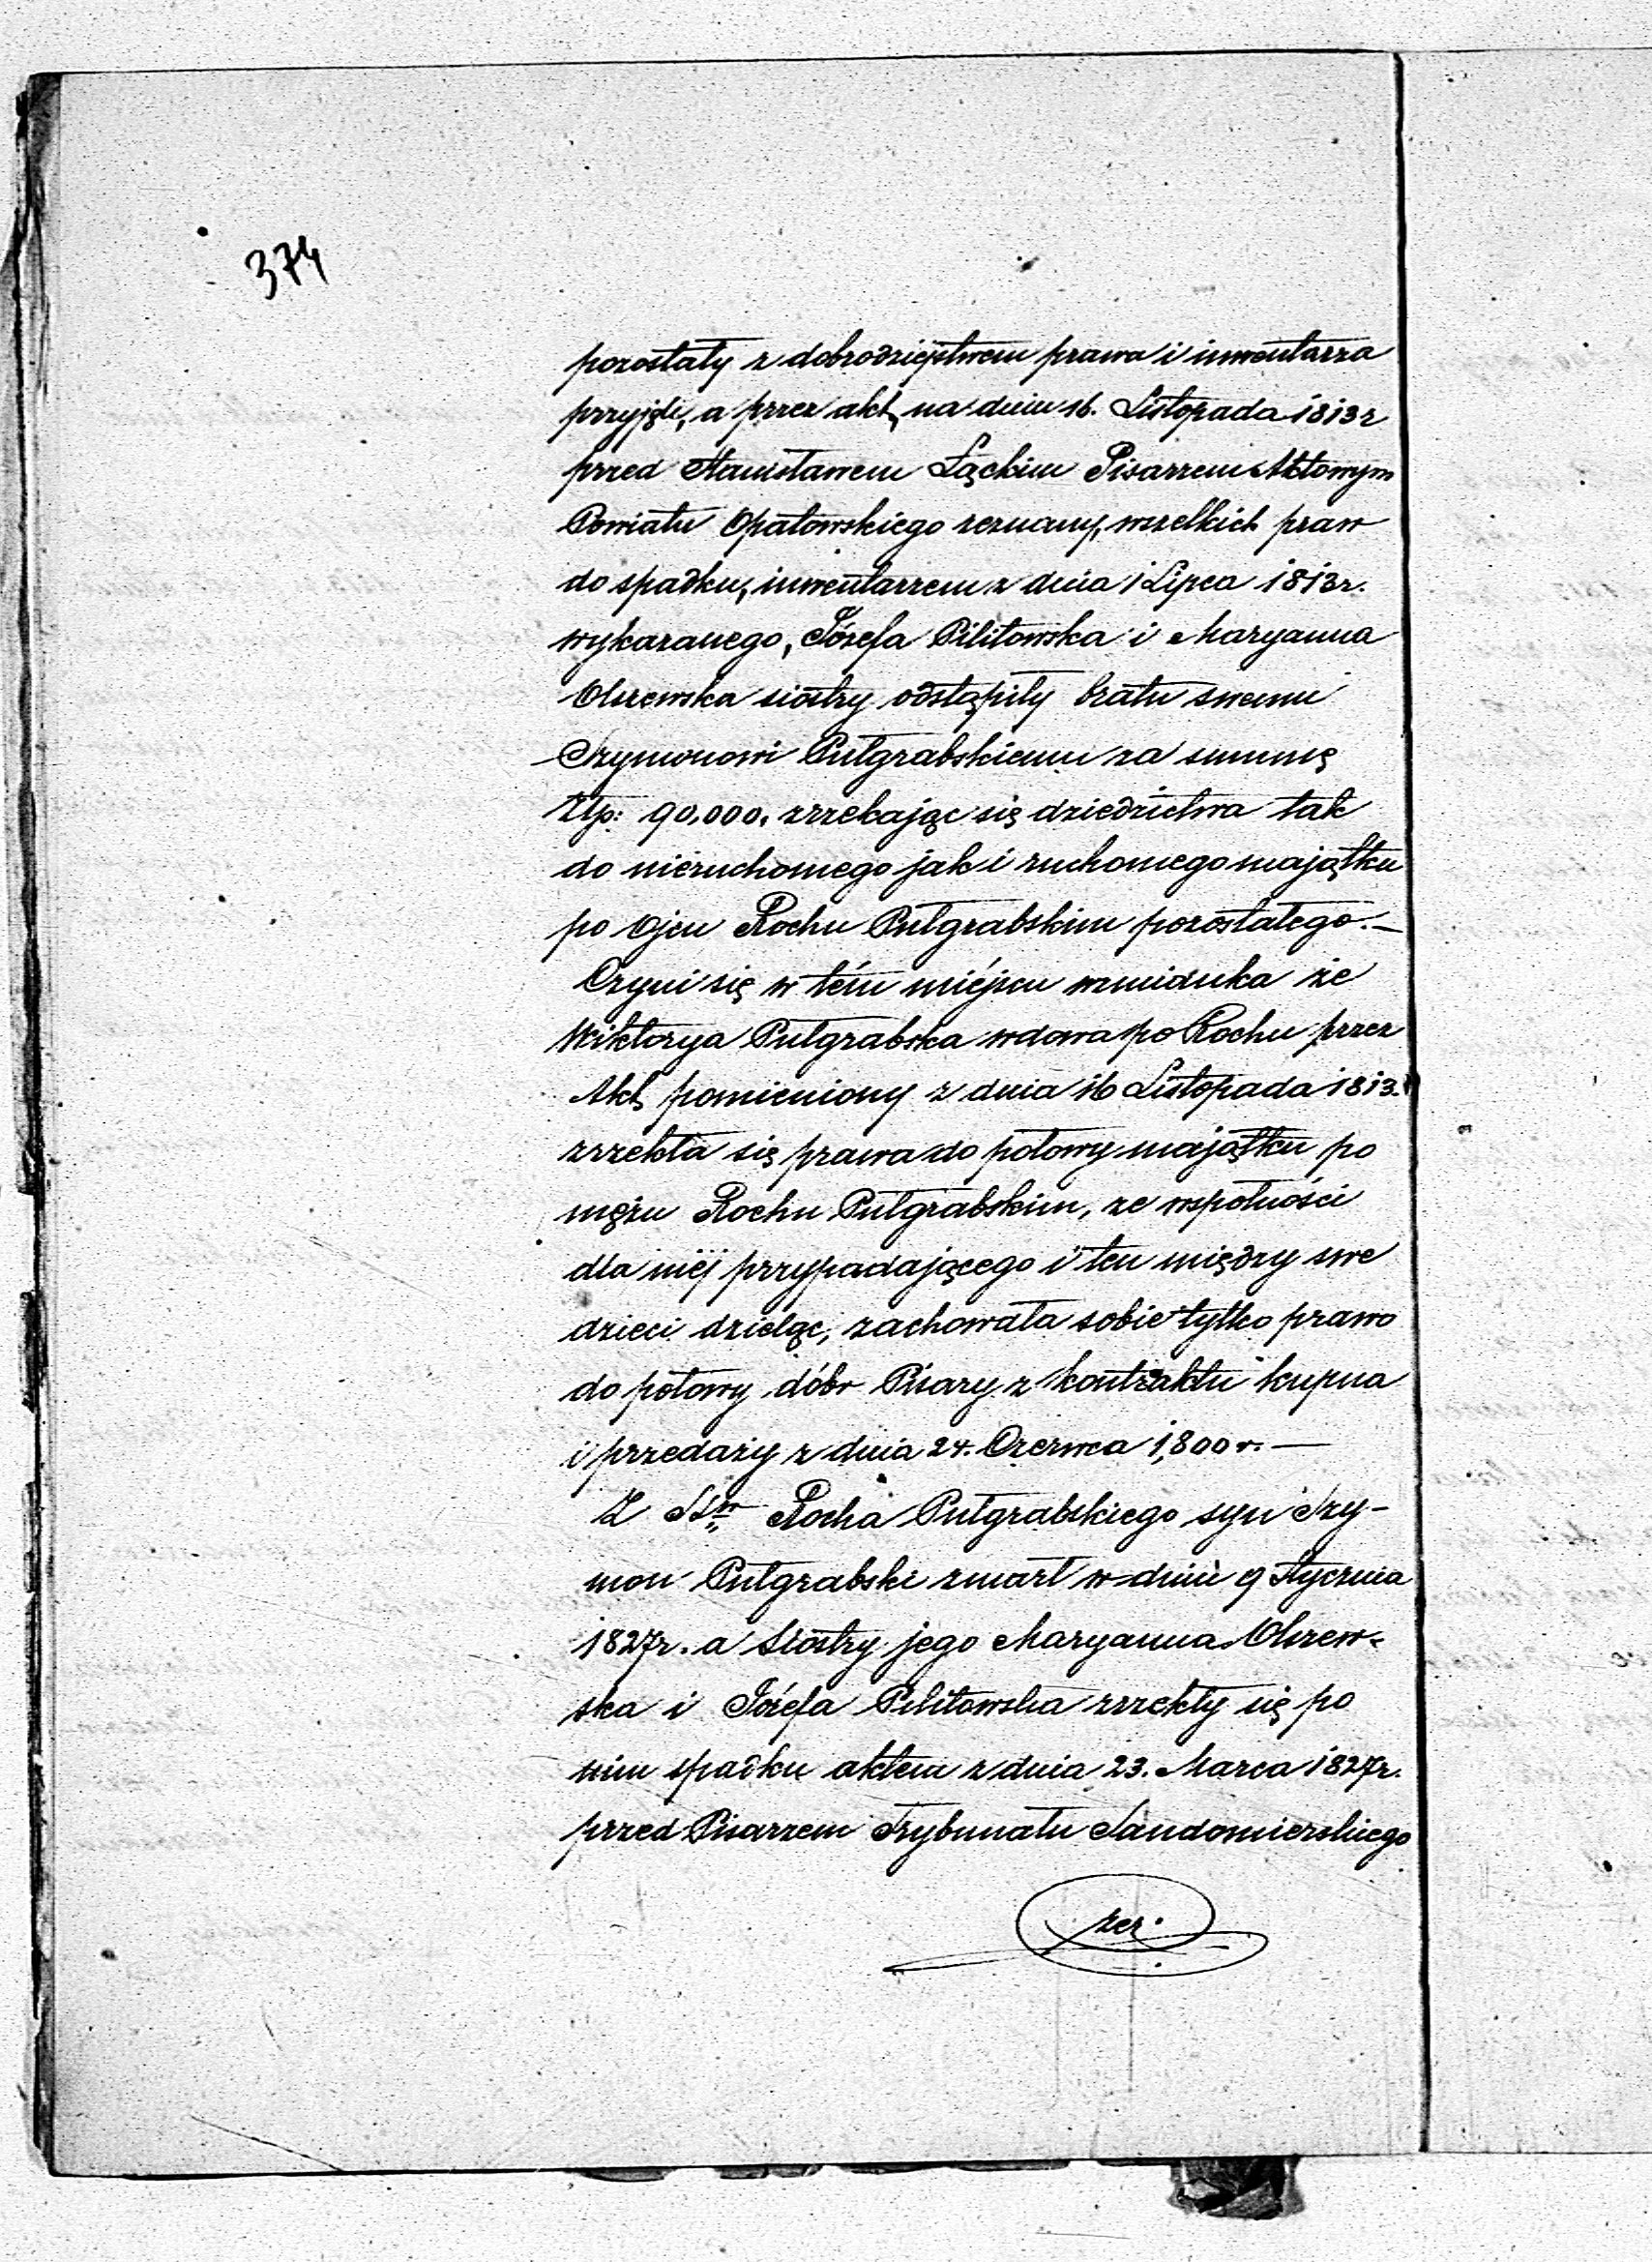 374
pozostały z dobrodziejstwem prawa i inwentarza
przyjęli, a przez akt, na dniu 16. Listopada 1813 r
przed Stanisławem Łąckim Pisarzem Aktowym
Powiatu Opatowskiego zeznany, wszelkich praw
do spadku, inwentarzem z dnia 1 Lipca 1813 r.
wykazanego, Józefa Pilitowska i Maryanna
Olszewska siostry odstąpiły bratu swemu
Szymonowi Putgrabskiemu za summę
Złp: 90,000. zrzekając się dziedzictwa tak
do nieruchomego jak i ruchomego majątku
po Ojcu Rochu Putgrabskim pozostałego.—
Czyni się w tém miéjscu wzmianka że
Wiktorya Putgrabska wdowa po Rochu przez
Akt, pomieniony z dnia 16 Listopada 1813. r
zrzekła się prawa do połowy majątku po
mężu Rochu Putgrabskim, ze wspólności
dla niéj przypadającego i ten między swe
dzieci dzieląc, zachowała sobie tylko prawo
do połowy dóbr Pisary z kontraktu kupna
i przedaży z dnia 24. Czerwca 1,800 r.—
Z Rocha Putgrabskiego syn Szy-
mon Putgrabski zmarł w dniu 9 Stycznia
1827 r. a siostry jego Maryanna Olszew-
ska i Józefa Pilitowska zrzekły się po
nim spadku aktem z dnia 23. Marca 1827 r.
przed Pisarzem Trybunału Sandomierskiego